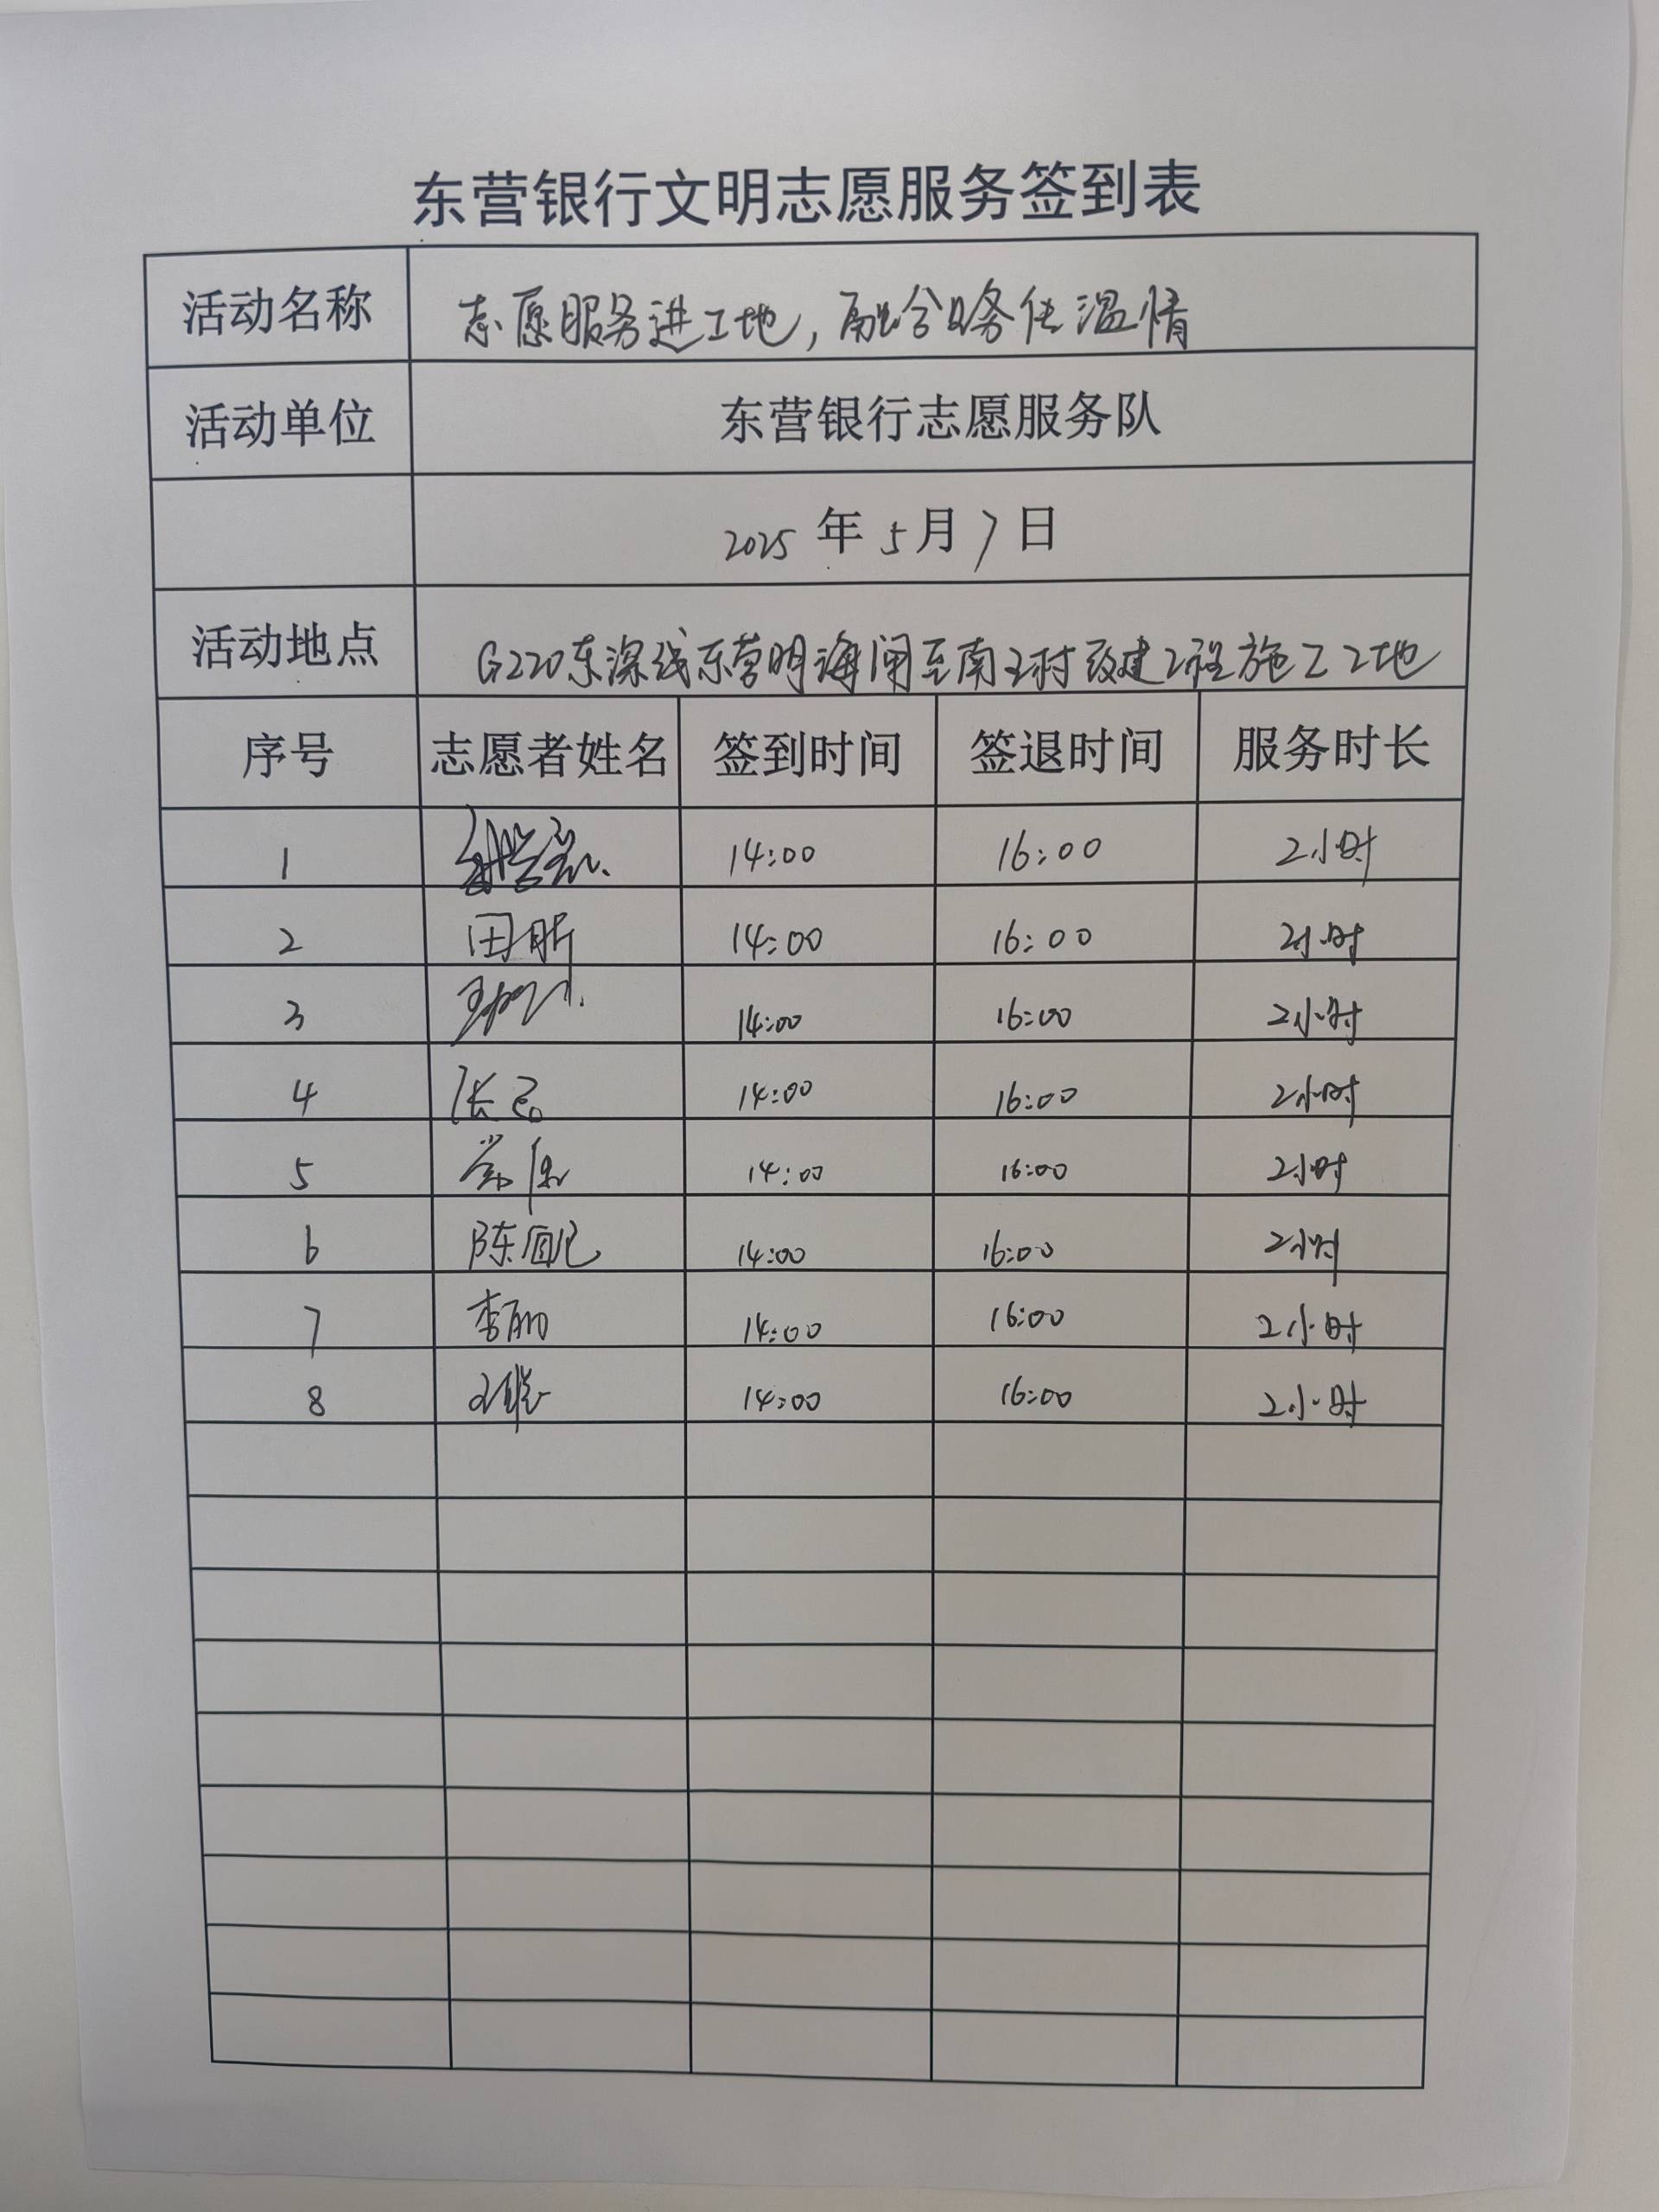 东营银行文明志愿服务签到表
活动名称 志愿服务进工地，融合服务传温情
活动单位 东营银行志愿服务队
2025 年 5 月 7 日
活动地点 G220东深线东营明海闸至南王村改建工程施工工地
序号 志愿者姓名 签到时间 签退时间 服务时长
1 14:00 16:00 2小时
2 田昕 14:00 16:00 2小时
3 14:00 16:00 2小时
4 14:00 16:00 2小时
5 14:00 16:00 2小时
6 14:00 16:00 2小时
7 李丽 14:00 16:00 2小时
8 14:00 16:00 2小时